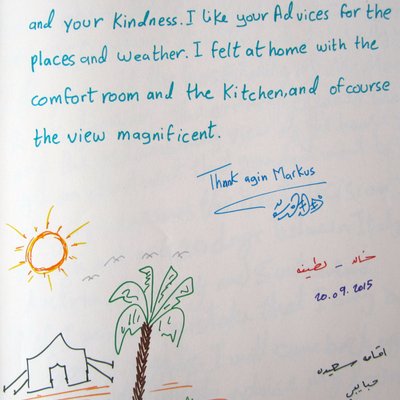 and your Kindness. I like your Advices for the
places and weather. I felt at home with the
comfort room and the Kitchen, and of course
the view magnificent.
Thank agin Markus
خالد - لطيفه
20.09.2015
اقامه سعيده
حبايبي